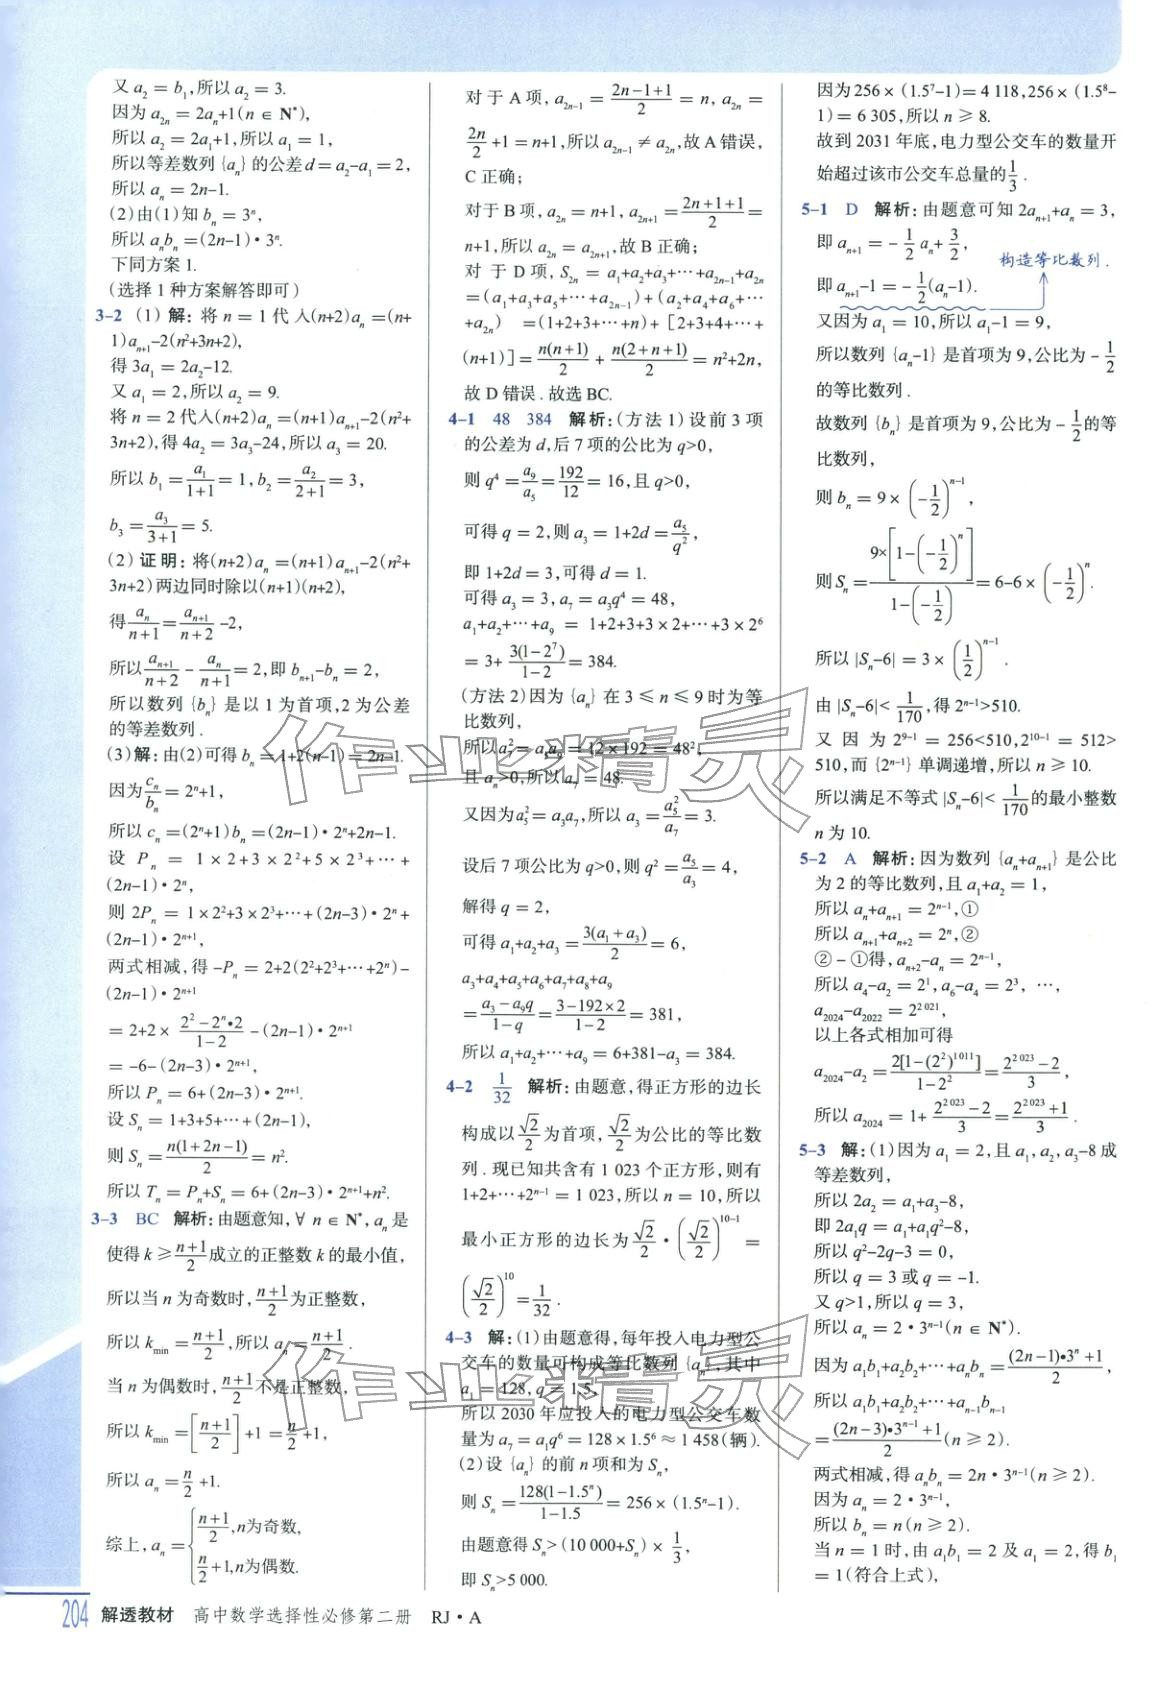 又 a₂ = b₁,所以 a₂ = 3.
因为 a₂ₙ = 2aₙ+1(n ∈ N*),
所以 a₂ = 2a₁+1,所以 a₁ = 1,
所以等差数列 {aₙ} 的公差 d = a₂-a₁ = 2,
所以 aₙ = 2n-1.
(2)由(1)知 bₙ = 3ⁿ,
所以 aₙbₙ = (2n-1)·3ⁿ.
下同方案 1.
(选择 1 种方案解答即可)
3-2 (1) 解: 将 n = 1 代入(n+2)aₙ = (n+
1)aₙ₊₁-2(n²+3n+2),
得 3a₁ = 2a₂-12.
又 a₁ = 2,所以 a₂ = 9.
将 n = 2 代入(n+2)aₙ = (n+1)aₙ₊₁-2(n²+
3n+2),得 4a₂ = 3a₃-24,所以 a₃ = 20.
所以 b₁ = a₁/(1+1) = 1,b₂ = a₂/(2+1) = 3,
b₃ = a₃/(3+1) = 5.
(2) 证明: 将(n+2)aₙ = (n+1)aₙ₊₁-2(n²+
3n+2)两边同时除以(n+1)(n+2),
得 aₙ/(n+1) = aₙ₊₁/(n+2) -2,
所以 aₙ₊₁/(n+2) - aₙ/(n+1) = 2,即 bₙ₊₁-bₙ = 2,
所以数列 {bₙ} 是以 1 为首项,2 为公差
的等差数列.
(3)解:由(2)可得 bₙ = 1+2(n-1) = 2n-1.
因为 cₙ/bₙ = 2ⁿ+1,
所以 cₙ = (2ⁿ+1)bₙ = (2n-1)·2ⁿ+2n-1.
设 Pₙ = 1×2+3×2²+5×2³+⋯+
(2n-1)·2ⁿ,
则 2Pₙ = 1×2²+3×2³+⋯+(2n-3)·2ⁿ+
(2n-1)·2ⁿ⁺¹,
两式相减,得 -Pₙ = 2+2(2²+2³+⋯+2ⁿ)-
(2n-1)·2ⁿ⁺¹
= 2+2×(2²-2ⁿ·2)/(1-2) -(2n-1)·2ⁿ⁺¹
= -6-(2n-3)·2ⁿ⁺¹,
所以 Pₙ = 6+(2n-3)·2ⁿ⁺¹.
设 Sₙ = 1+3+5+⋯+(2n-1),
则 Sₙ = n(1+2n-1)/2 = n².
所以 Tₙ = Pₙ+Sₙ = 6+(2n-3)·2ⁿ⁺¹+n².
3-3 BC 解析:由题意知,∀ n ∈ N*,aₙ 是
使得 k ≥ (n+1)/2 成立的正整数 k 的最小值,
所以当 n 为奇数时,(n+1)/2 为正整数,
所以 kₘᵢₙ = (n+1)/2,所以 aₙ = (n+1)/2.
当 n 为偶数时,(n+1)/2 不是正整数,
所以 kₘᵢₙ = [(n+1)/2]+1 = n/2+1,
所以 aₙ = n/2 +1.
综上,aₙ = { (n+1)/2,n为奇数,
n/2+1,n为偶数.
对于 A 项,a₂ₙ₋₁ = (2n-1+1)/2 = n,a₂ₙ =
2n/2 +1 = n+1,所以 a₂ₙ₋₁ ≠ a₂ₙ,故 A 错误,
C 正确;
对于 B 项,a₂ₙ = n+1,a₂ₙ₊₁ = (2n+1+1)/2 =
n+1,所以 a₂ₙ = a₂ₙ₊₁,故 B 正确;
对于 D 项,S₂ₙ = a₁+a₂+a₃+⋯+a₂ₙ₋₁+a₂ₙ
= (a₁+a₃+a₅+⋯+a₂ₙ₋₁)+(a₂+a₄+a₆+⋯
+a₂ₙ) = (1+2+3+⋯+n)+[2+3+4+⋯+
(n+1)] = n(n+1)/2 + n(2+n+1)/2 = n²+2n,
故 D 错误.故选 BC.
4-1 48 384 解析:(方法 1)设前 3 项
的公差为 d,后 7 项的公比为 q>0,
则 q⁴ = a₉/a₅ = 192/12 = 16,且 q>0,
可得 q = 2,则 a₃ = 1+2d = a₅/q²,
即 1+2d = 3,可得 d = 1.
可得 a₃ = 3,a₇ = a₃q⁴ = 48,
a₁+a₂+⋯+a₉ = 1+2+3+3×2+⋯+3×2⁶
= 3+ 3(1-2⁷)/(1-2) = 384.
(方法 2)因为 {aₙ} 在 3 ≤ n ≤ 9 时为等
比数列,
所以 a₇² = a₅a₉ = 12×192 = 48²,
且 aₙ>0,所以 a₇ = 48.
又因为 a₅² = a₃a₇,所以 a₃ = a₅²/a₇ = 3.
设后 7 项公比为 q>0,则 q² = a₅/a₃ = 4,
解得 q = 2,
可得 a₁+a₂+a₃ = 3(a₁+a₃)/2 = 6,
a₃+a₄+a₅+a₆+a₇+a₈+a₉
= (a₃-a₉q)/(1-q) = (3-192×2)/(1-2) = 381,
所以 a₁+a₂+⋯+a₉ = 6+381-a₃ = 384.
4-2 1/32 解析:由题意,得正方形的边长
构成以 √2/2 为首项,√2/2 为公比的等比数
列.现已知共含有 1 023 个正方形,则有
1+2+⋯+2ⁿ⁻¹ = 1 023,所以 n = 10,所以
最小正方形的边长为 √2/2·(√2/2)¹⁰⁻¹ =
(√2/2)¹⁰ = 1/32.
4-3 解:(1)由题意得,每年投入电力型公
交车的数量可构成等比数列 {aₙ},其中
a₁ = 128,q = 1.5,
所以 2030 年应投入的电力型公交车数
量为 a₇ = a₁q⁶ = 128×1.5⁶ ≈ 1 458(辆).
(2)设 {aₙ} 的前 n 项和为 Sₙ,
则 Sₙ = 128(1-1.5ⁿ)/(1-1.5) = 256×(1.5ⁿ-1).
由题意得 Sₙ>(10 000+Sₙ)×1/3,
即 Sₙ>5 000.
因为 256×(1.5⁷-1) = 4 118,256×(1.5⁸-
1) = 6 305,所以 n ≥ 8.
故到 2031 年底,电力型公交车的数量开
始超过该市公交车总量的 1/3.
5-1 D 解析:由题意可知 2aₙ₊₁+aₙ = 3,
即 aₙ₊₁ = -1/2 aₙ+3/2,
构造等比数列.
即 aₙ₊₁-1 = -1/2(aₙ-1).
又因为 a₁ = 10,所以 a₁-1 = 9,
所以数列 {aₙ-1} 是首项为 9,公比为 -1/2
的等比数列.
故数列 {bₙ} 是首项为 9,公比为 -1/2 的等
比数列,
则 bₙ = 9×(-1/2)ⁿ⁻¹,
则 Sₙ = 9×[1-(-1/2)ⁿ]/(1-(-1/2)) = 6-6×(-1/2)ⁿ.
所以 |Sₙ-6| = 3×(1/2)ⁿ⁻¹.
由 |Sₙ-6|<1/170,得 2ⁿ⁻¹>510.
又因为 2⁹⁻¹ = 256<510,2¹⁰⁻¹ = 512>
510,而 {2ⁿ⁻¹} 单调递增,所以 n ≥ 10.
所以满足不等式 |Sₙ-6|<1/170 的最小整数
n 为 10.
5-2 A 解析:因为数列 {aₙ+aₙ₊₁} 是公比
为 2 的等比数列,且 a₁+a₂ = 1,
所以 aₙ+aₙ₊₁ = 2ⁿ⁻¹,①
所以 aₙ₊₁+aₙ₊₂ = 2ⁿ,②
②-①得,aₙ₊₂-aₙ = 2ⁿ⁻¹,
所以 a₄-a₂ = 2¹,a₆-a₄ = 2³,⋯,
a₂₀₂₄-a₂₀₂₂ = 2²⁰²¹,
以上各式相加可得
a₂₀₂₄-a₂ = 2[1-(2²)¹⁰¹¹]/(1-2²) = (2²⁰²³-2)/3,
所以 a₂₀₂₄ = 1+ (2²⁰²³-2)/3 = (2²⁰²³+1)/3.
5-3 解:(1)因为 a₁ = 2,且 a₁,a₂,a₃-8 成
等差数列,
所以 2a₂ = a₁+a₃-8,
即 2a₁q = a₁+a₁q²-8,
所以 q²-2q-3 = 0,
所以 q = 3 或 q = -1.
又 q>1,所以 q = 3,
所以 aₙ = 2·3ⁿ⁻¹(n ∈ N*).
因为 a₁b₁+a₂b₂+⋯+aₙbₙ = ((2n-1)·3ⁿ+1)/2,
所以 a₁b₁+a₂b₂+⋯+aₙ₋₁bₙ₋₁
= ((2n-3)·3ⁿ⁻¹+1)/2 (n ≥ 2).
两式相减,得 aₙbₙ = 2n·3ⁿ⁻¹(n ≥ 2).
因为 aₙ = 2·3ⁿ⁻¹,
所以 bₙ = n(n ≥ 2).
当 n = 1 时,由 a₁b₁ = 2 及 a₁ = 2,得 b₁
= 1(符合上式),
204 解透教材 高中数学选择性必修第二册 RJ·A
作业精灵
作业精灵